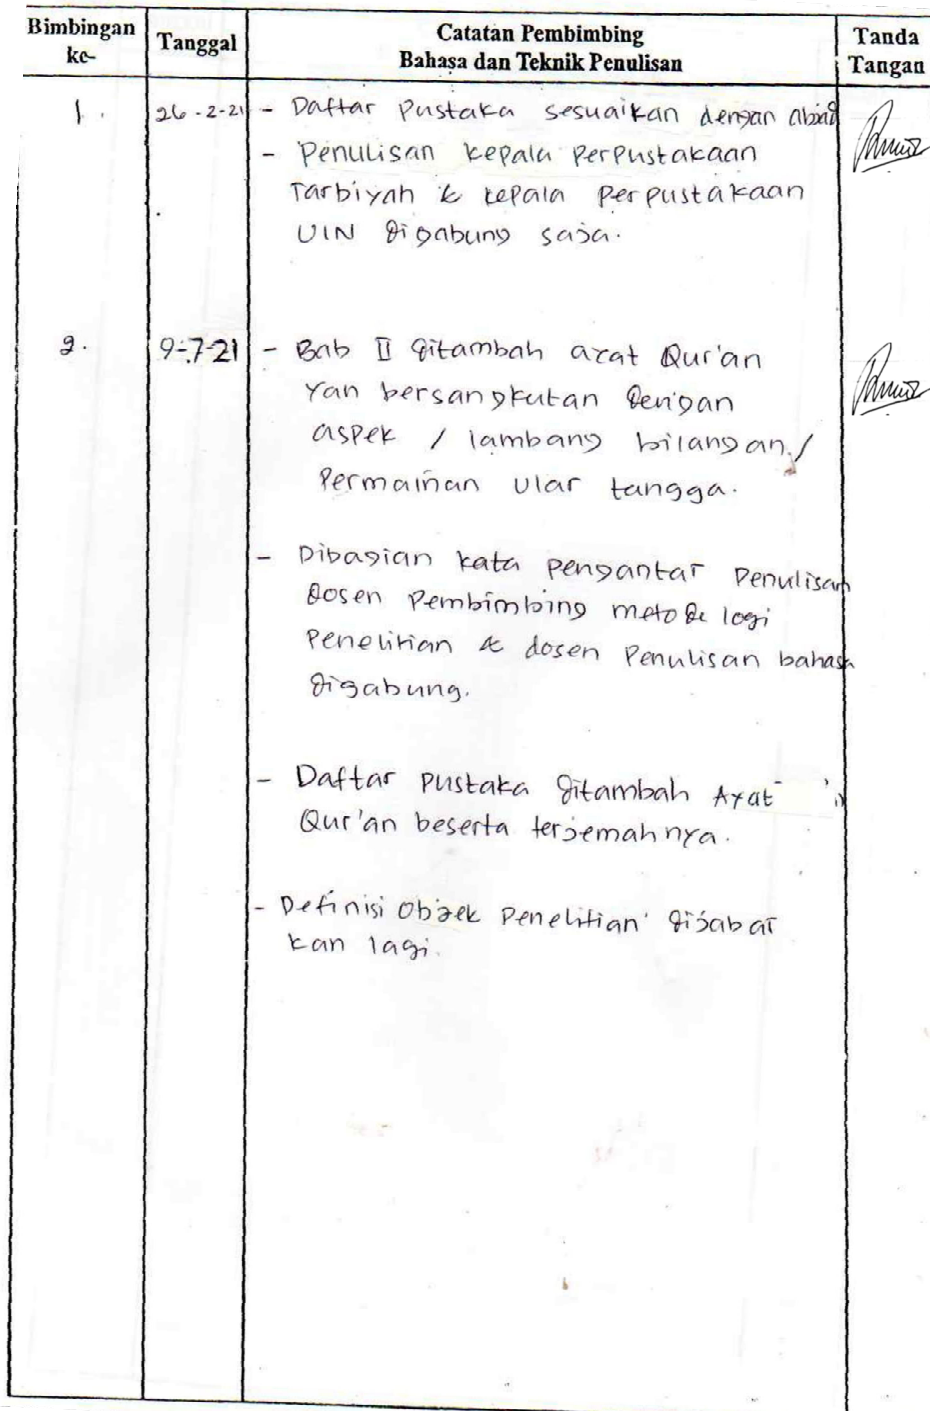 Bimbingan ke-
Tanggal
Catatan Pembimbing
Bahasa dan Teknik Penulisan
Tanda Tangan
1. 26-2-21 - Daftar Pustaka sesuaikan dengan abjad
- Penulisan kepala Perpustakaan
Tarbiyah & kepala perpustakaan
UIN digabung saja.
2. 9-7-21 - Bab II ditambah ayat Qur'an
Yan bersangkutan dengan
aspek / lambang bilangan /
Permainan ular tangga.
- Dibagian kata pengantar Penulisan
dosen Pembimbing metode logi
Penelitian & dosen Penulisan bahasa
digabung.
- Daftar pustaka ditambah Ayat
Qur'an beserta terjemahnya.
- Definisi Objek Penelitian dijabar
kan lagi.